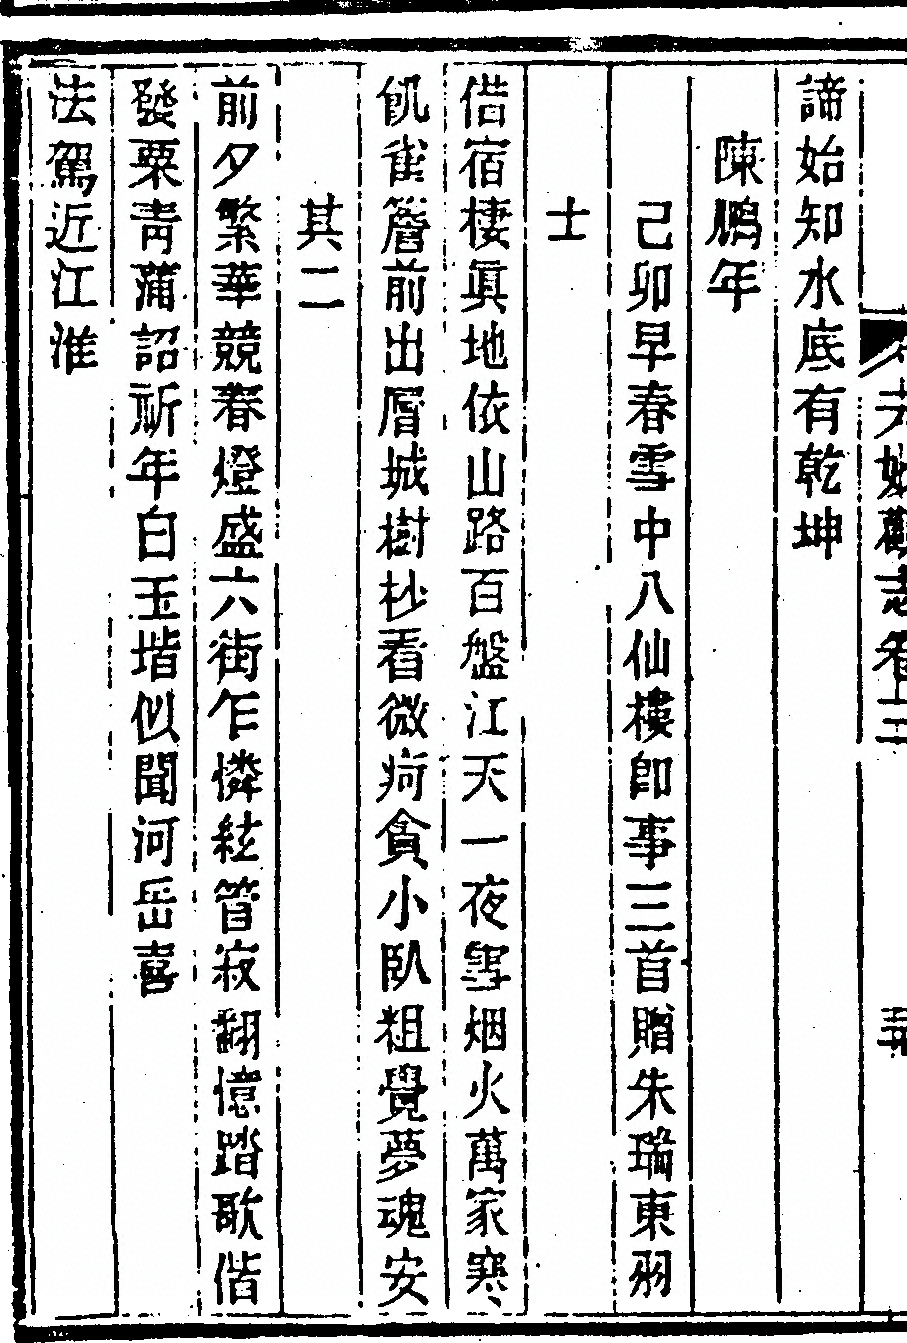 諦始知水底有乾坤
陳鵬年
己卯早春雪中八仙樓卽事三首贈朱瑞東羽
士
借宿棲眞地依山路百盤江天一夜雪烟火萬家寒
飢雀簷前出層城樹杪看微疴貪小臥粗覺夢魂安
其二
前夕繁華競春燈盛六街乍憐絃管寂翻憶踏歌偕
發粟靑蒲詔祈年白玉堦似聞河岳喜
法駕近江淮